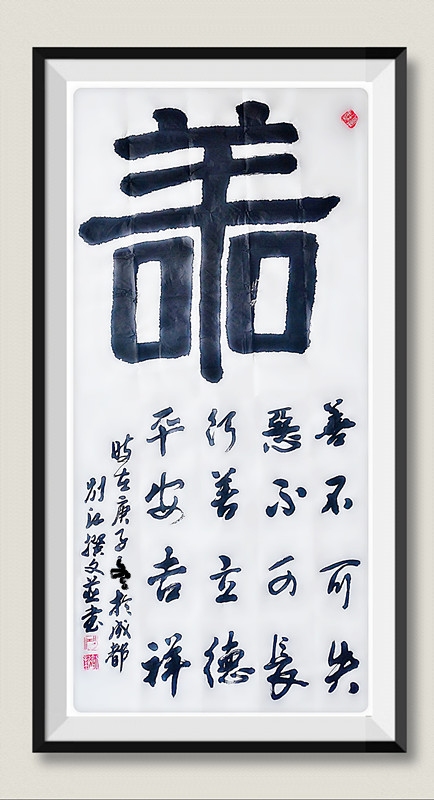 善
善不可失
惡不可長
行善立德
平安吉祥
時在庚子冬於成都
劉江撰文並書